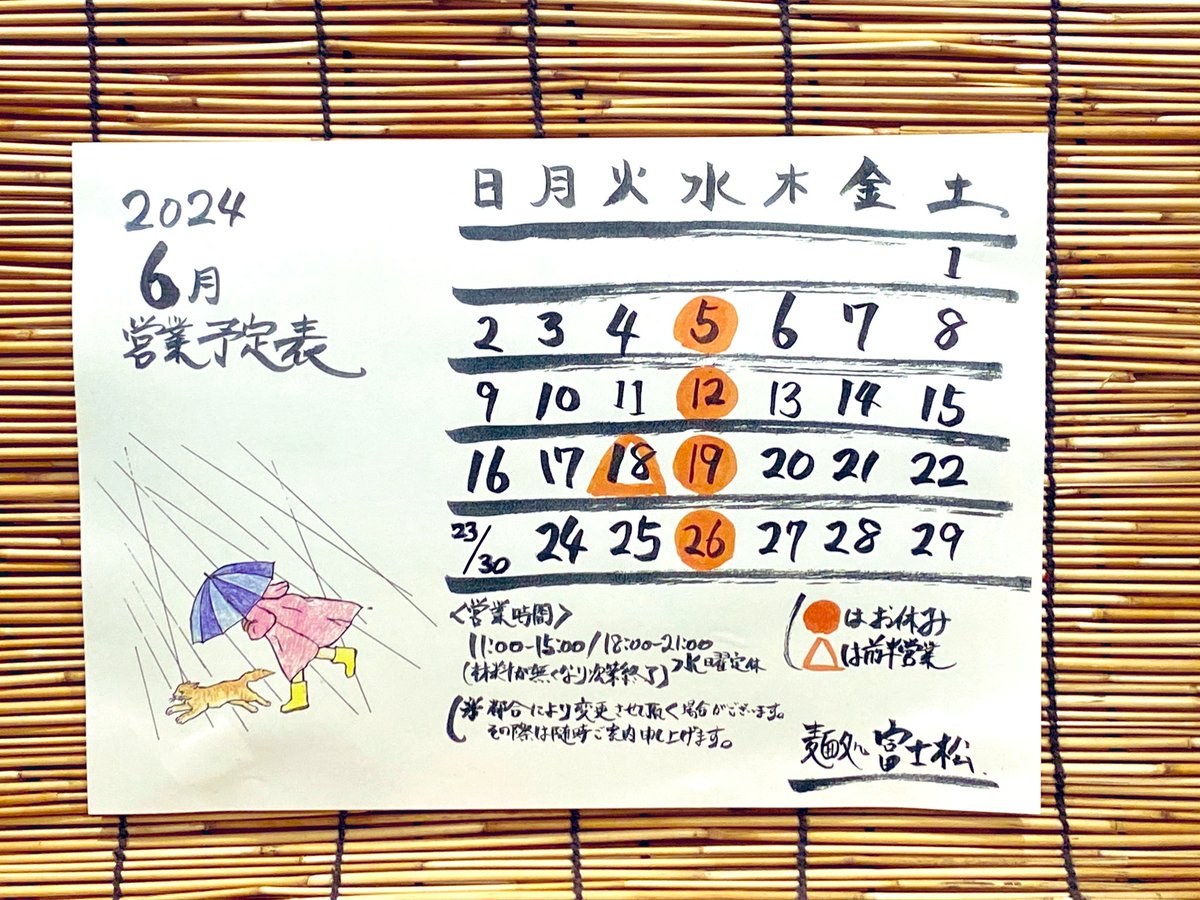 2024
6月
営業予定表
日 月 火 水 木 金 土
1
2 3 4 5 6 7 8
9 10 11 12 13 14 15
16 17 18 19 20 21 22
23/30 24 25 26 27 28 29
<営業時間>
11:00-15:00/18:00-21:00
(材料が無くなり次第終了) 水曜定休
※都合により変更させて頂く場合がございます。
その際は随時ご案内申し上げます。
はお休み
は前半営業
麺処 富士松